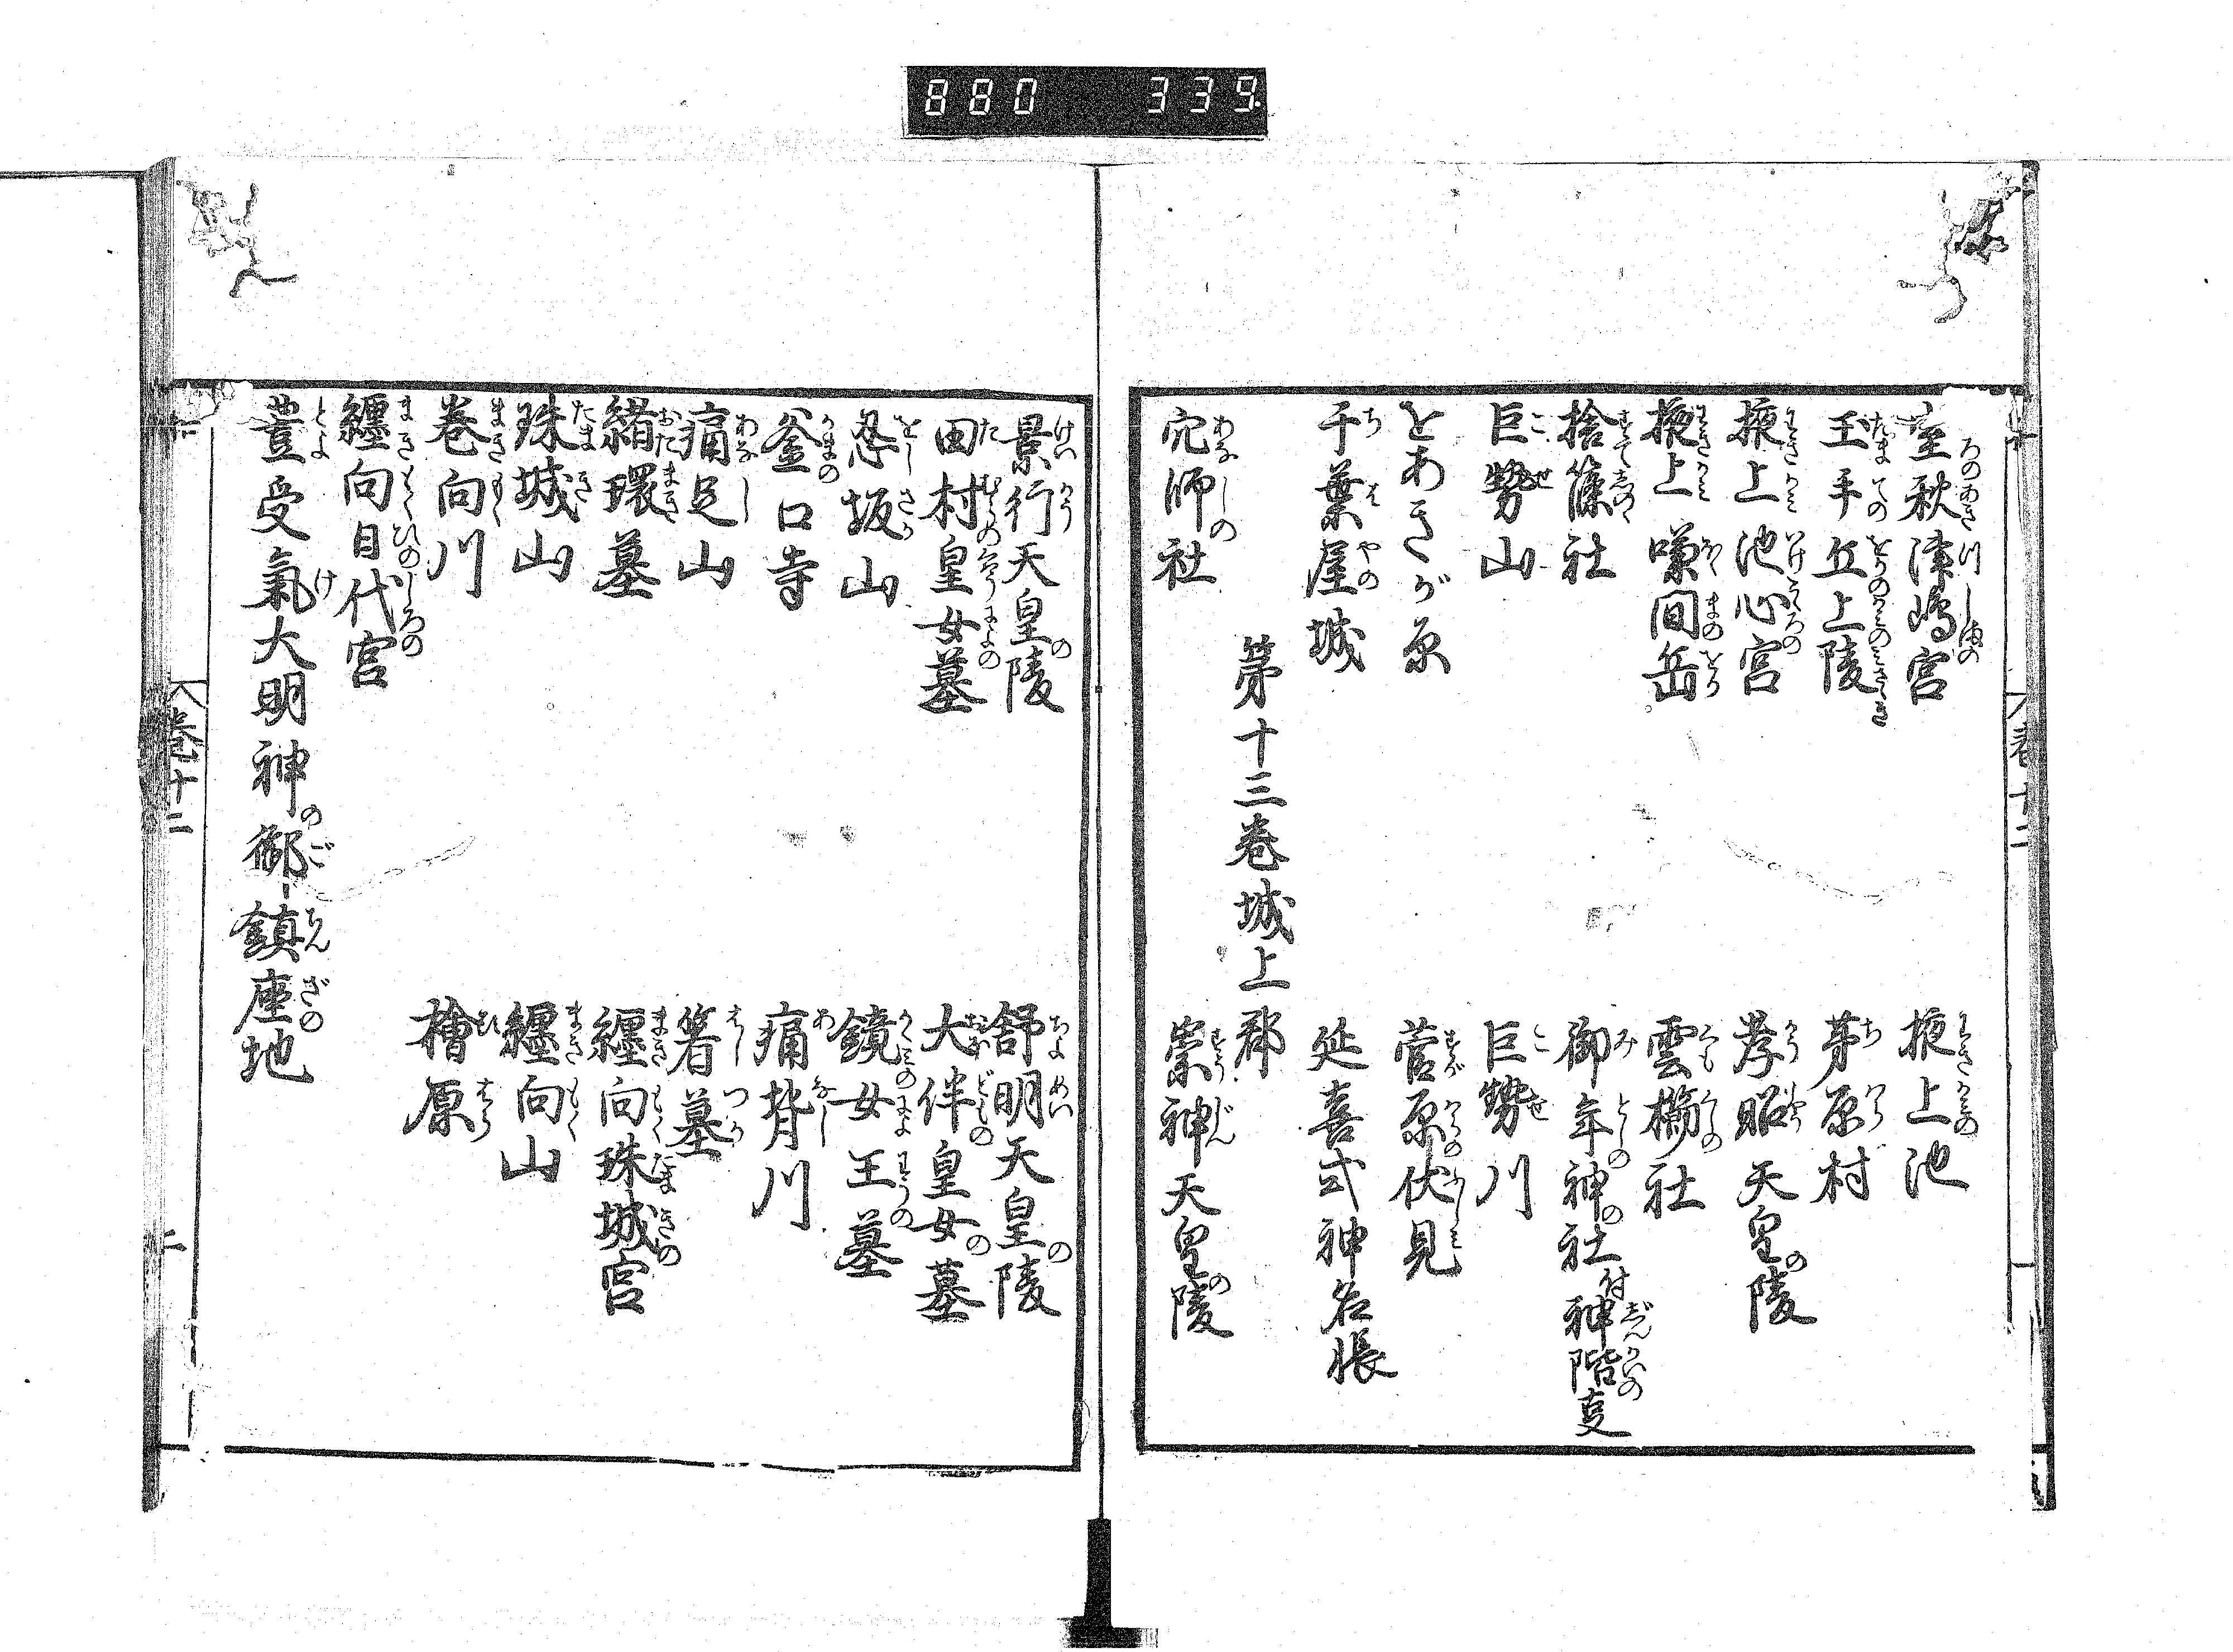 880 339
室秋津嶋宮
掖上池
玉手丘上陵
茅原村
掖上池心宮
孝昭天皇の陵
掖上嗛間岳
雲櫛社
捨篠社
御年神の社付神階叓
巨勢山
巨勢川
とあきが原
菅原伏見
千葉屋城
延喜式神名帳
第十三巻城上郡
穴師社
崇神天皇の陵
景行天皇の陵
舒明天皇の陵
田村皇女墓
大伴皇女の墓
忍坂山
鏡女王墓
釜口寺
痛背川
痛足山
箸墓
緒環墓
纒向珠城宮
珠城山
纒向山
巻向川
檜原
纒向日代宮
豊受氣大明神の御鎮座の地
巻十二
二